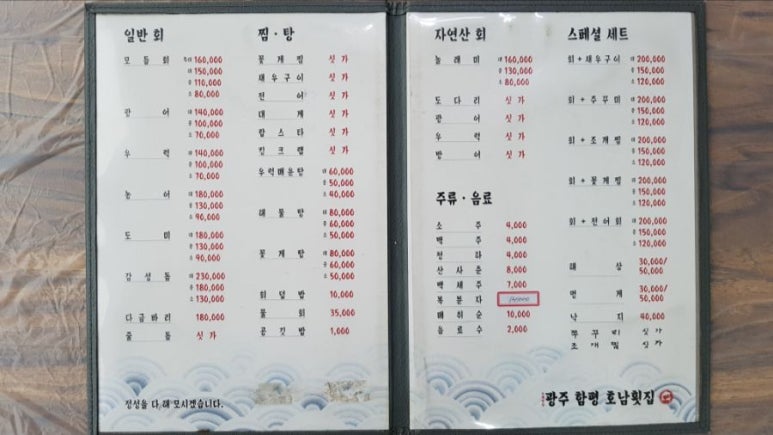 일반 회
모듬회 특대 160,000
대 150,000
중 110,000
소 80,000
광어 대 140,000
중 100,000
소 70,000
우럭 대 140,000
중 100,000
소 70,000
농어 대 180,000
중 130,000
소 90,000
도미 대 180,000
중 130,000
소 90,000
감성돔 대 230,000
중 180,000
소 130,000
다금바리 180,000
줄돔 싯가
정성을 다해 모시겠습니다.
찜·탕
꽃게찜 싯가
새우구이 싯가
전어 싯가
대게 싯가
랍스타 싯가
킹크랩 싯가
우럭매운탕 대 60,000
중 50,000
소 40,000
해물탕 대 80,000
중 60,000
소 50,000
꽃게탕 대 80,000
중 60,000
소 50,000
회덮밥 10,000
물회 35,000
공깃밥 1,000
자연산 회
놀래미 대 160,000
중 130,000
소 80,000
도다리 싯가
광어 싯가
우럭 싯가
방어 싯가
주류·음료
소주 4,000
맥주 4,000
청하 4,000
산사춘 8,000
백세주 7,000
복분자
매취순 10,000
음료수 2,000
스페셜 세트
회+새우구이 대 200,000
중 150,000
소 120,000
회+주꾸미 대 200,000
중 150,000
소 120,000
회+조개찜 대 200,000
중 150,000
소 120,000
회+꽃게찜 대 200,000
중 150,000
소 120,000
회+전어회 대 200,000
중 150,000
소 120,000
해삼 30,000/
50,000
멍게 30,000/
50,000
낙지 40,000
쭈꾸미 싯가
조개찜 싯가
광주 함평 호남횟집